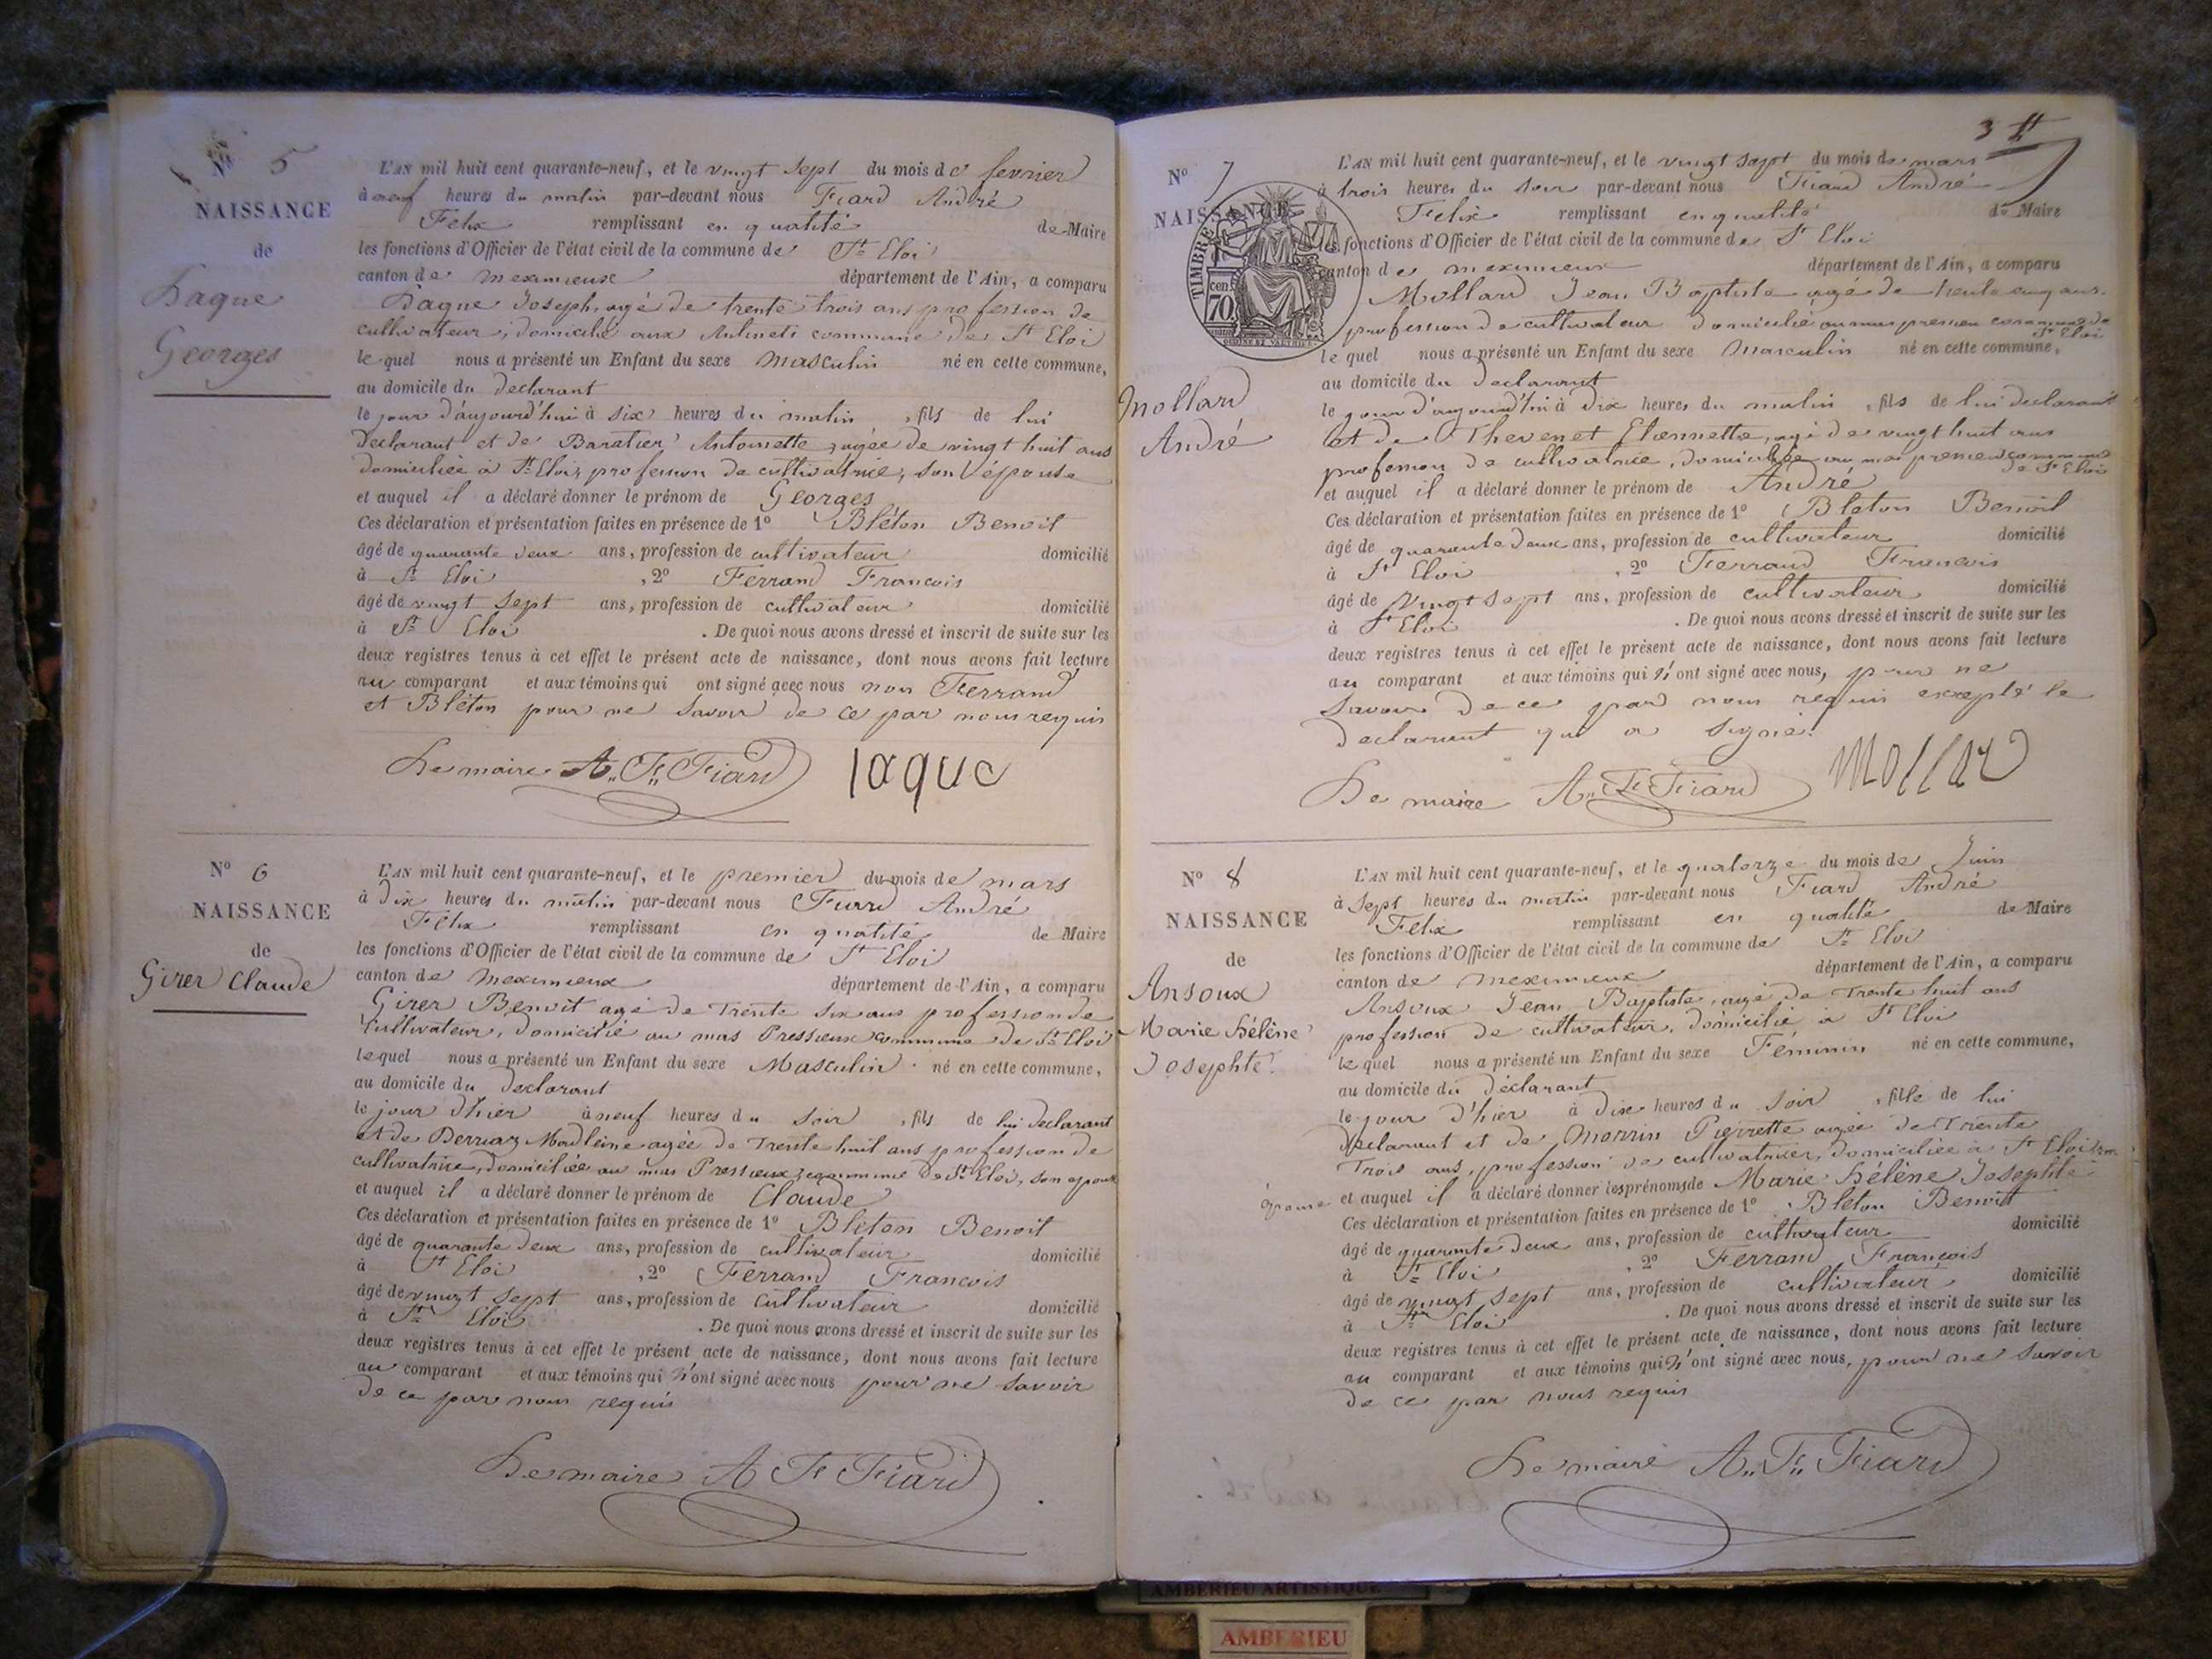 N° 5
NAISSANCE
de
Laque
Georges
L'AN mil huit cent quarante-neuf, et le vingt sept du mois de fevrier
à neuf heures du matin par-devant nous Fiard André
Felix remplissant en qualité de Maire
les fonctions d'Officier de l'état civil de la commune de St Eloi
canton de meximieux département de l'Ain, a comparu
Laque Joseph, agé de trente trois ans profession de
cultivateur, domicilié aux commune de St Eloi
le quel nous a présenté un Enfant du sexe masculin né en cette commune,
au domicile du declarant
le jour d'aujourd'hui à six heures du matin , fils de lui
declarant et de Baratier Antoinette, agée de vingt huit ans
domiciliée à St Eloi, profession de cultivatrice, son épouse
et auquel il a déclaré donner le prénom de Georges
Ces déclaration et présentation faites en présence de 1° Bléton Benoit
âgé de quarante deux ans, profession de cultivateur domicilié
à St Eloi , 2° Ferrand Francois
âgé de vingt sept ans, profession de cultivateur domicilié
à St Eloi . De quoi nous avons dressé et inscrit de suite sur les
deux registres tenus à cet effet le présent acte de naissance, dont nous avons fait lecture
au comparant et aux témoins qui ont signé avec nous non Ferrand
et Bléton pour ne savoir de ce par nous requis
Le maire A,, F,, Fiard laque
N° 6
NAISSANCE
de
Girer Claude
L'AN mil huit cent quarante-neuf, et le premier du mois de mars
à Dix heures du matin par-devant nous Fiard André
Félix remplissant en qualité de Maire
les fonctions d'Officier de l'état civil de la commune de St Eloi
canton de meximieux département de l'Ain, a comparu
Girer Benoit agé de Trente six ans profession de
cultivateur, domicilié au mas Pressieux commune de St Eloi
lequel nous a présenté un Enfant du sexe Masculin né en cette commune,
au domicile du declarant
le jour d'hier à neuf heures du soir , fils de lui declarant
et de Derriaz Madleine agée de Trente huit ans profession de
cultivatrice, domiciliée au mas Pressieux, commune de St Eloi, son epouse
et auquel il a déclaré donner le prénom de Claude
Ces déclaration et présentation faites en présence de 1° Bleton Benoit
âgé de quarante deux ans, profession de cultivateur domicilié
à St Eloi , 2° Ferrand Francois
âgé de vingt sept ans, profession de cultivateur domicilié
à St Eloi . De quoi nous avons dressé et inscrit de suite sur les
deux registres tenus à cet effet le présent acte de naissance, dont nous avons fait lecture
au comparant et aux témoins qui n'ont signé avec nous pour ne savoir
de ce par nous requis
Le maire A F Fiard
3
N° 7
NAISSANCE
TIMBRE
cen. 70
Mollard
André
L'AN mil huit cent quarante-neuf, et le vingt sept du mois de mars
à trois heures du soir par-devant nous Fiard André
Felix remplissant en qualité de Maire
les fonctions d'Officier de l'état civil de la commune de St Eloi
canton de meximieux département de l'Ain, a comparu
Mollard Jean Baptiste agé de trente cinq ans
profession de cultivateur domicilié au mas pressieu commune de
St Eloi
le quel nous a présenté un Enfant du sexe masculin né en cette commune,
au domicile du declarant
le jour d'aujourd'hui à dix heures du matin , fils de lui declarant
et de Thevenet Etiennette, agé de vingt huit ans
profession de cultivatrice, domiciliée au mas pressieu commune
de St Eloi
et auquel il a déclaré donner le prénom de André
Ces déclaration et présentation faites en présence de 1° Bleton Benoit
âgé de quarante deux ans, profession de cultivateur domicilié
à St Eloi , 2° Ferrand Francois
âgé de vingt sept ans, profession de cultivateur domicilié
à St Eloi . De quoi nous avons dressé et inscrit de suite sur les
deux registres tenus à cet effet le présent acte de naissance, dont nous avons fait lecture
au comparant et aux témoins qui n'ont signé avec nous, pour ne
savoir de ce par nous requis excepté le
declarant qui a signé.
Le maire A,, F Fiard Mollard
N° 8
NAISSANCE
de
Ansoux
Marie Hélène
Josephte
L'AN mil huit cent quarante-neuf, et le quatorze du mois de Juin
à sept heures du matin par-devant nous Fiard André
Felix remplissant en qualité de Maire
les fonctions d'Officier de l'état civil de la commune de St Eloi
canton de meximieux département de l'Ain, a comparu
Ansoux Jean Baptiste, agé de Trente huit ans
profession de cultivateur, domicilié à St Eloi
le quel nous a présenté un Enfant du sexe Féminin né en cette commune,
au domicile du déclarant
le jour d'hier à Dix heures du soir , fille de lui
declarant et de Morrin Pierrette agée de Trente
Trois ans, profession de cultivatrice, domiciliée à St Eloi, son
épouse et auquel il a déclaré donner les prénoms de Marie Hélène Josephte
Ces déclaration et présentation faites en présence de 1° Bleton Benoit
âgé de quarante deux ans, profession de cultivateur domicilié
à St Eloi , 2° Ferrand Francois
âgé de vingt sept ans, profession de cultivateur domicilié
à St Eloi . De quoi nous avons dressé et inscrit de suite sur les
deux registres tenus à cet effet le présent acte de naissance, dont nous avons fait lecture
au comparant et aux témoins qui n'ont signé avec nous, pour ne savoir
de ce par nous requis
Le maire A,, F,, Fiard
AMBERIEU ARTISTIQUE
AMBERIEU